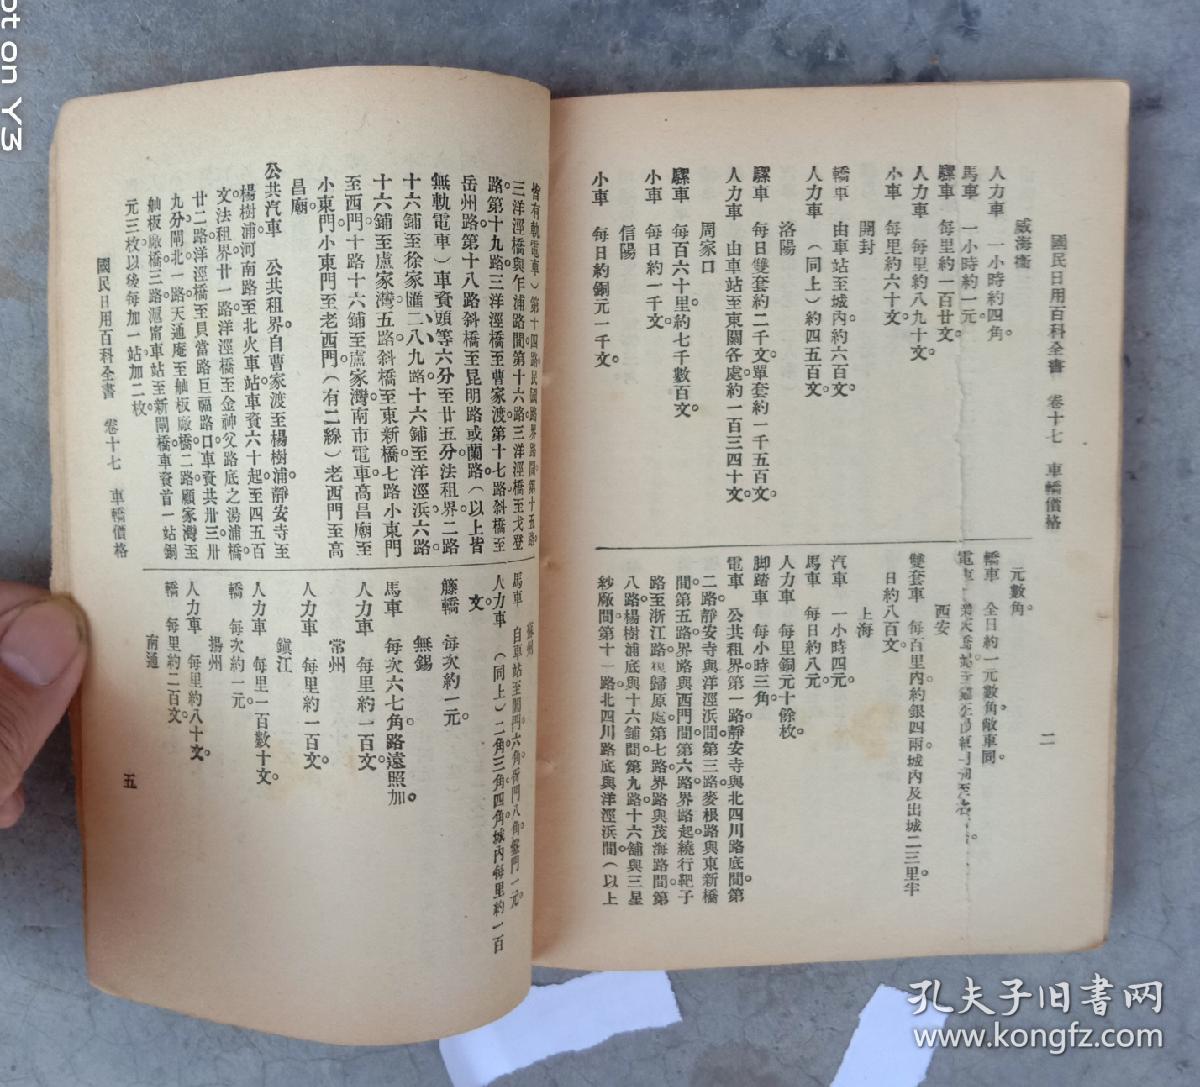 國民日用百科全書　卷十七　車轎價格
二
威海衛
人力車　一小時約四角
馬車　一小時約一元。
騾車　每里約一百廿文。
人力車　每里約八九十文。
小車　每里約六十文。
開封
轎車　由車站至城內約六百文。
人力車　（同上）約四五百文。
洛陽
騾車　每日雙套約二千文單套約一千五百文。
人力車　由車站至東關各處約一百三四十文。
周家口
騾車　每百六十里約七千數百文。
小車　每日約一千文。
信陽
小車　每日約銅元一千文。
元數角。
轎車　全日約一元數角敞車同。
電車
西安
雙套車　每百里內約銀四兩城內及出城二三里半
日約八百文。
上海
汽車　一小時四元。
馬車　每日約八元。
人力車　每里銅元十餘枚。
脚踏車　每小時三角。
電車　公共租界第一路靜安寺與北四川路底間第
二路靜安寺與洋涇浜間第三路麥根路與東新橋
間第五路界路與西門間第六路界路起繞行靶子
路至浙江路視歸原處第七路界路與茂海路間第
八路楊樹浦底與十六舖間第九路十六舖與三星
紗廠間第十一路北四川路底與洋涇浜間（以上
皆有軌電車）第十四路民國路界路間第十五路
三洋涇橋與乍浦路間第十六路三洋涇橋至戈登
路第十九路三洋涇橋至曹家渡第十七路斜橋至
岳州路第十八路斜橋至昆明路或蘭路（以上皆
無軌電車）車資頭等六分至廿五分法租界二路
十六鋪至徐家匯二八九路十六鋪至洋涇浜六路
十六鋪至盧家灣五路斜橋至東新橋七路小東門
至西門十路十六鋪至盧家灣南市電車高昌廟至
小東門小東門至老西門（有二線）老西門至高
昌廟。
公共汽車　公共租界自曹家渡至楊樹浦靜安寺至
楊樹浦河南路至北火車站車資六十起至四五百
文法租界廿一路洋涇橋至金神父路底之湯浦橋
廿二路洋涇橋至貝當路巨福路口車資共卅三卅
九分閘北一路天通庵至舢板廠橋二路顧家灣至
舢板廠橋三路滬甯車站至新閘橋車資首一站銅
元三枚以後每加一站加二枚。
蘇州
馬車　自車站至閶門六角胥門八角盤門一元。
人力車　（同上）二角三角四角城內每里約一百
文。
藤轎　每次約一元。
無錫
馬車　每次六七角路遠照加。
人力車　每里約一百文。
常州
人力車　每里約一百文。
鎭江
人力車　每里一百數十文。
轎　每次約一元。
揚州
人力車　每里約八十文。
轎　每里約二百文。
南通
國民日用百科全書　卷十七　車轎價格
五
孔夫子旧书网
www.kongfz.com
ot on Y3